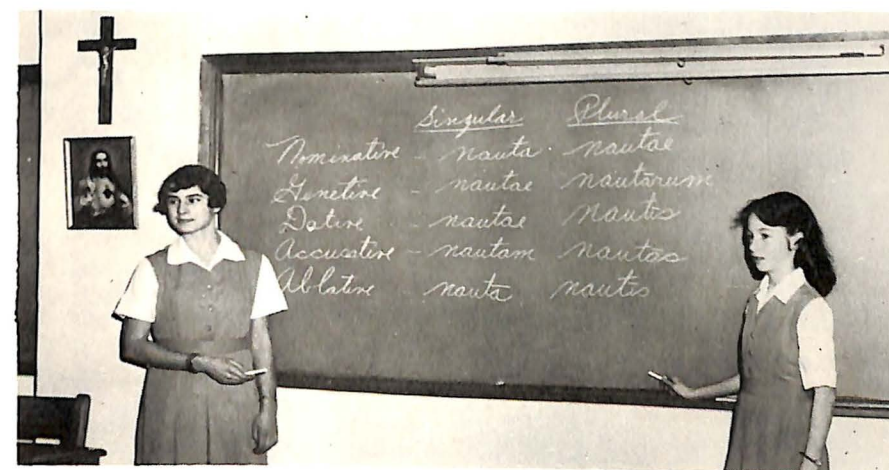 Singular Plural
Nominative - nauta nautae
Genetive - nautae nautarum
Dative - nautae nautis
Accusative - nautam nautas
Ablative - nauta nautis